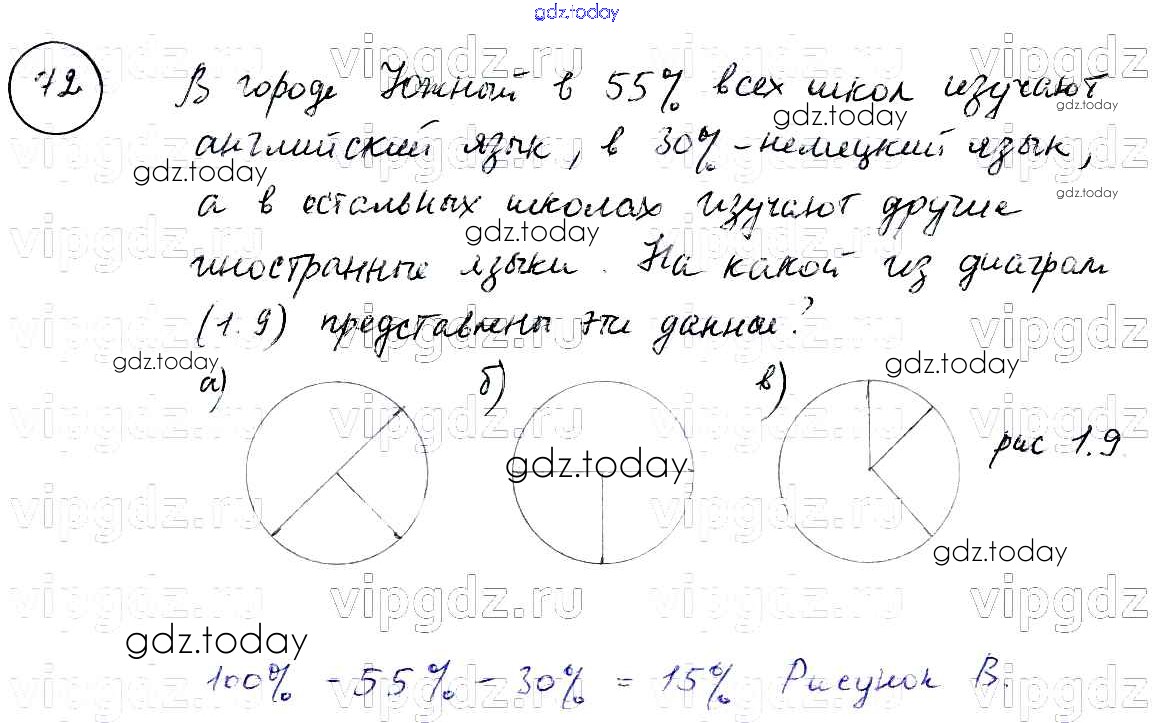 gdz.today
72 В городе Южный в 55% всех школ изучают
английский язык, в 30% - немецкий язык,
а в остальных школах изучают другие
иностранные языки. На какой из диаграм
(1.9) представлены эти данные?
а) б) в)
рис 1.9
100% - 55% - 30% = 15% Рисунок В.
vipgdz.ru
gdz.today